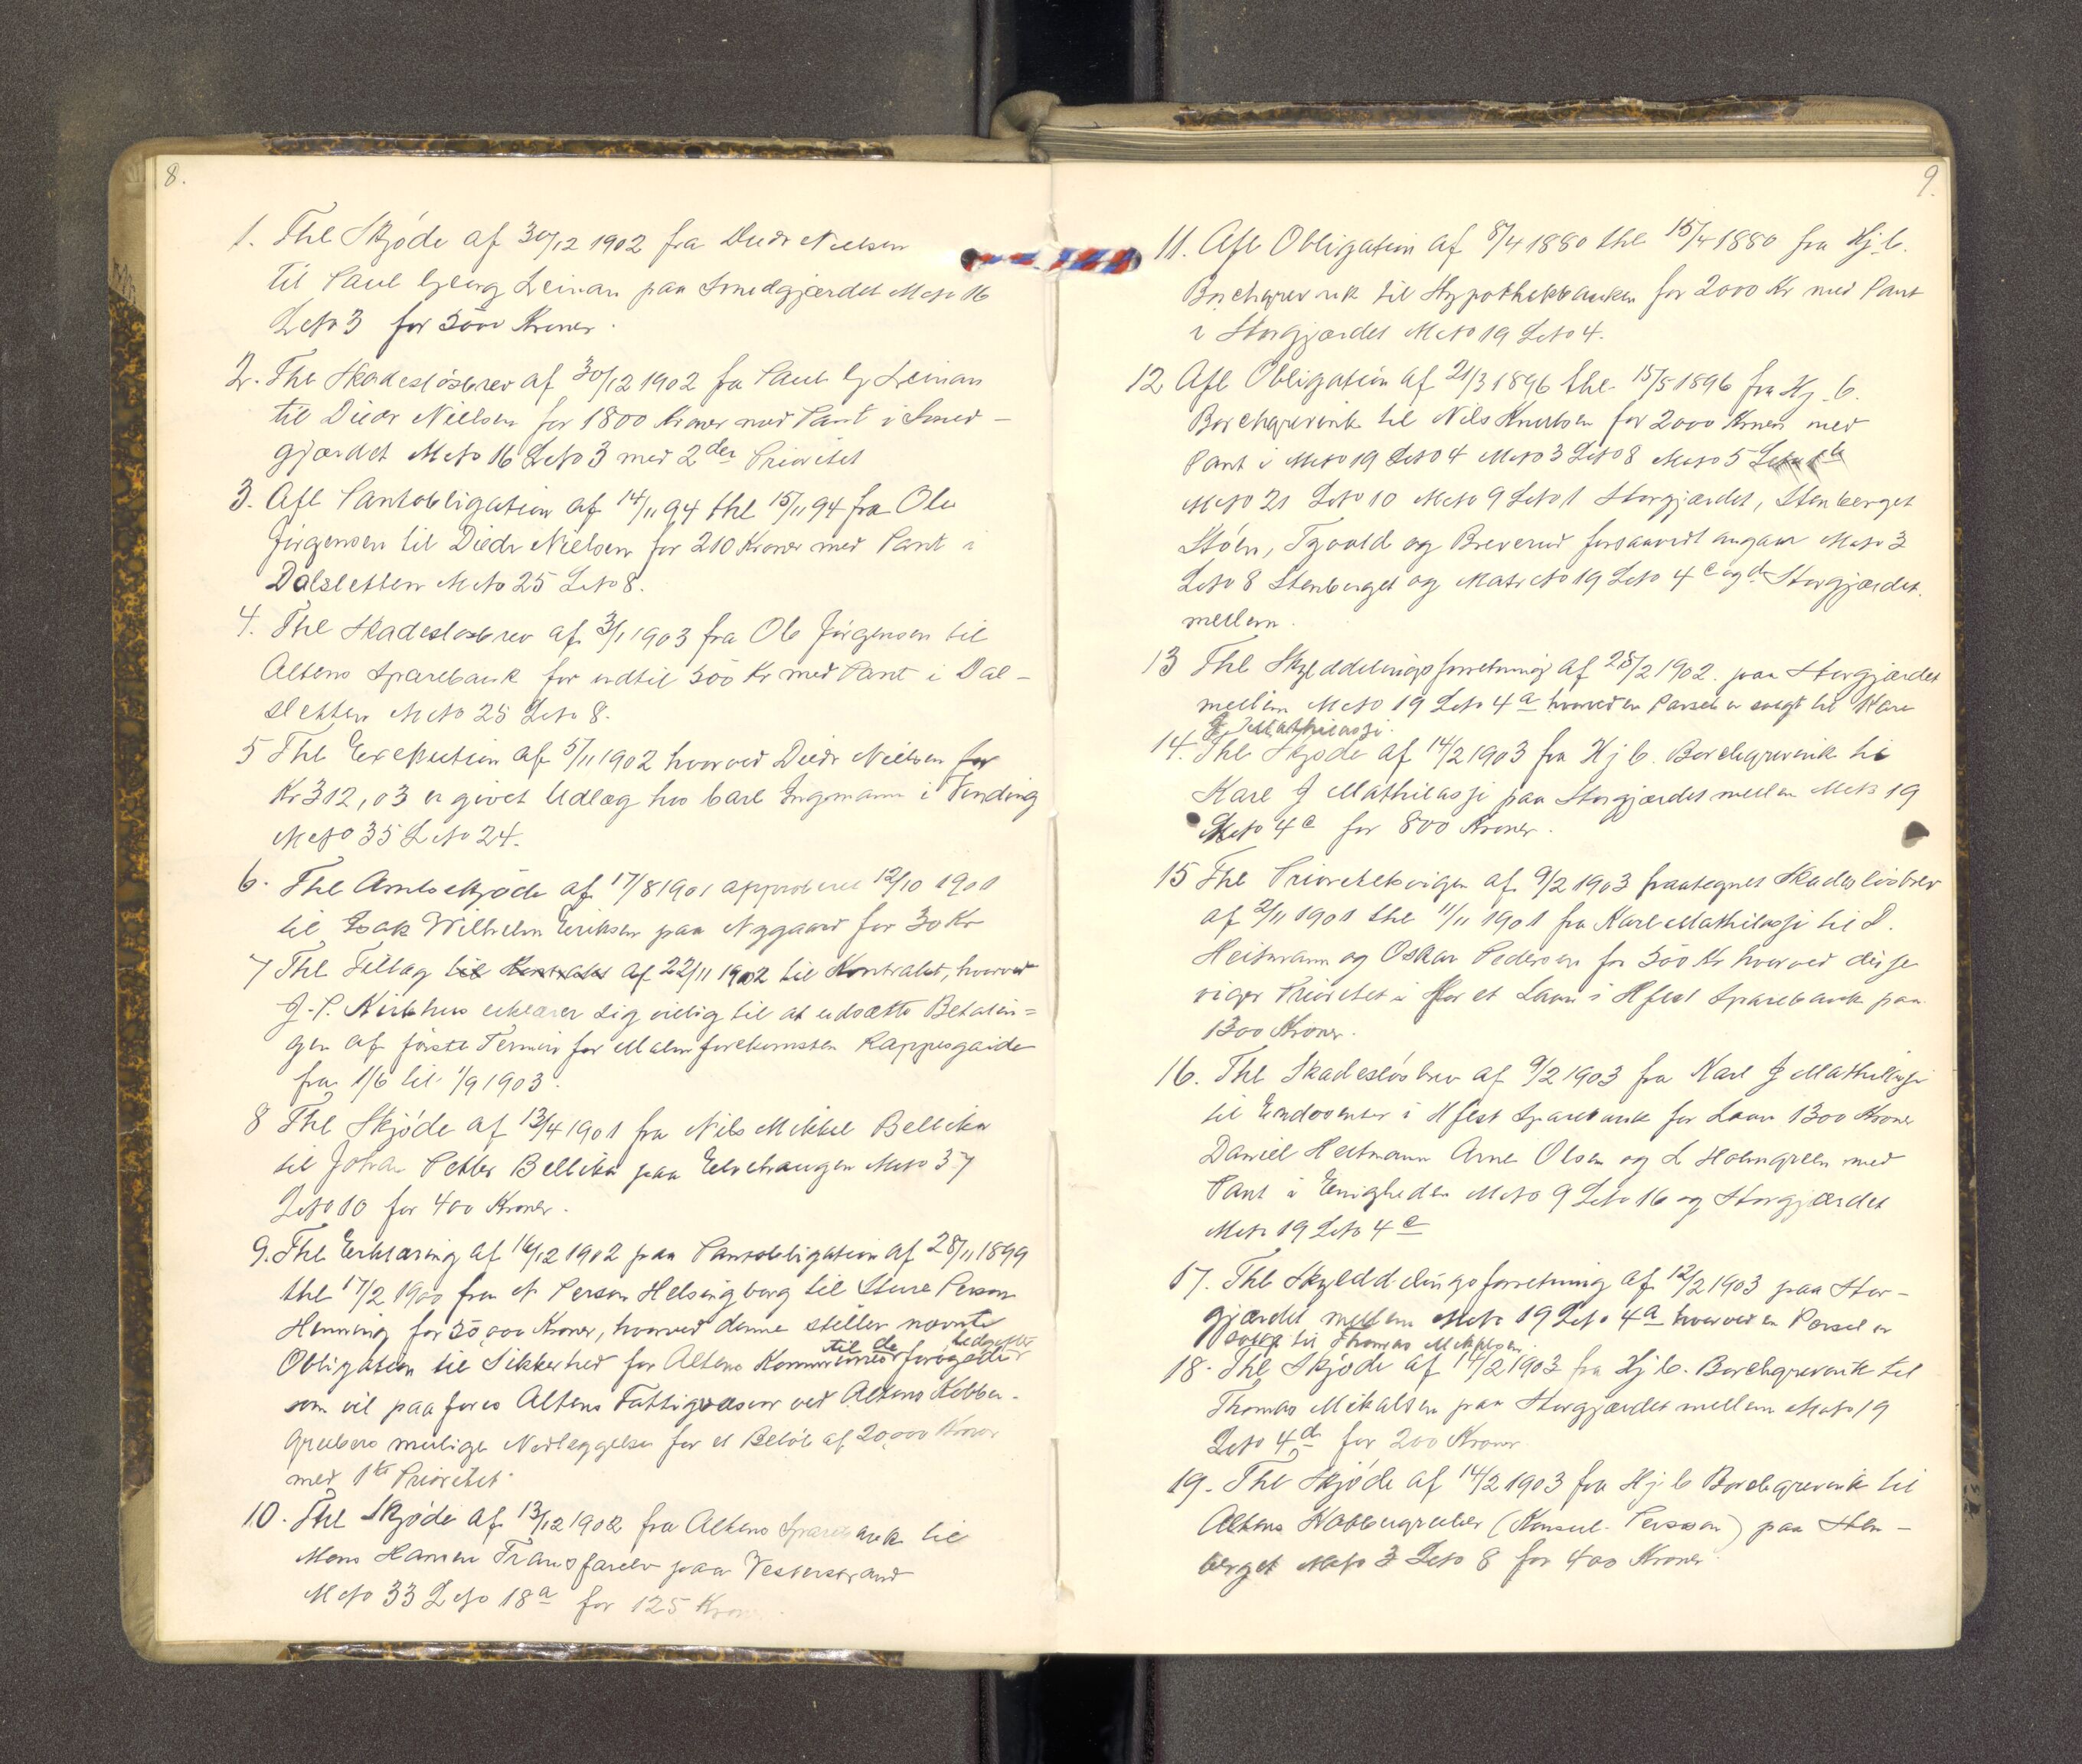 8.
1. Thl Skjöde af 30/12 1902 fra Diedr Nielsen
til Paul Georg Leinan paa Smedgjærdet MNo 16
LNo 3 for 3000 Kroner.
2. Thl Skadeslösbrev af 30/12 1902 fra Paul G Leinan
til Diedr Nielsen for 1800 Kroner med Pant i Smed-
gjærdet MNo 16 LNo 3 med 2den Prioritet
3. Afl Pantobligation af 14/11 94 thl 15/11 94 fra Ole
Jörgensen til Diedr Nielsen for 210 Kroner med Pant i
Dalsletten MNo 25 LNo 8.
4. Thl Skadeslösbrev af 3/1 1903 fra Ole Jörgensen til
Altens Sparebank for indtil 300 Kr med Pant i Dal-
sletten MNo 25 LNo 8.
5 Thl Exekution af 5/11 1902 hvorved Diedr Nielsen for
Kr 312,03 er givet Udlæg hos Carl Ingmann i Vinding
MNo 35 LNo 24.
6. Thl Amtsskjöde af 17/8 1901 approberet 12/10 1901
til Isak Wilhelm Eriksen paa Nygaard for 30 Kr
7 Thl Tillæg til Kontrakt af 22/11 1902 til Kontrakt, hvorved
J. P. erklærer sig villig til at udsætte Betalin=
gen af förste Termin for Malmforekomsten Rappesgaide
fra 1/6 til 1/9 1903.
8 Thl Skjöde af 13/4 1901 fra Nils Mikkel Bellika
til Johan Petter Bellika paa Elvehaugen MNo 37
LNo 10 for 400 Kroner.
9. Thl Erklæring af 16/12 1902 paa Pantobligation af 28/11 1899
thl 17/2 1900 fra N Persson Helsingborg til Sture Persson
Henning for 50,000 Kroner, hvorved denne stiller nævnte
til de
Obligation til Sikkerhed for Altens Kommune for
som vil paaföres Altens Fattigvæsen ved Altens Kobber-
grubers mulige Nedlæggelse for et Belöb af 20,000 Kroner
med 1ste Prioritet.
10. Thl Skjöde af 13/12 1902 fra Altens Sparebank til
Mons Hansen Transfarelv paa Vesterstrand
MNo 33 LNo 18a for 125 Kroner.
9.
11. Afl Obligation af 8/4 1880 thl 15/4 1880 fra Hj. C.
Borchgrevink til Hypothekbanken for 2000 Kr med Pant
i Storgjærdet MNo 19 LNo 4.
12 Afl Obligation af 21/3 1896 thl 15/5 1896 fra Hj. C.
Borchgrevink til Nils Knutsen for 2000 Kroner med
Pant i MNo 19 LNo 4 MNo 3 LNo 8 MNo 5 LNo 1b
MNo 21 LNo 10 MNo 9 LNo 1 Storgjærdet, Stenberget
Stöen, Tyvold og Breverud forsaavidt angaar MNo 3
LNo 8 Stenberget og Matr No 19 LNo 4c og d Storgjærdet
mellem.
13 Thl Skylddelingsforretning af 28/2 1902. paa Storgjærdet
mellem MNo 19 LNo 4a hvorved en Parsel er solgt til Karl
J Mathilassi.
14. Thl Skjöde af 14/2 1903 fra Hj C. Borchgrevink til
Karl J Mathilassi paa Storgjærdet mellem MNo 19
LNo 4c for 800 Kroner.
15 Thl Prioritetsvigen af 9/2 1903 paategnet Skadeslösbrev
af 2/11 1901 thl 11/11 1901 fra Karl Mathilassi til D.
Heitmann og Oskar Pedersen for 300 Kr hvorved disse
viger Prioritet for et Laan i Hfest Sparebank paa
1300 Kroner.
16. Thl Skadeslösbrev af 9/2 1903 fra Karl J Mathilassi
til Endossenter i Hfest Sparebank for Laan 1300 Kroner
Daniel Heitmann Arne Olsen og L Holmgreen med
Pant i Enigheden MNo 9 LNo 16 og Storgjærdet
MNo 19 LNo 4c
17. Thl Skylddelingsforretning af 12/2 1903 paa Stor-
gjærdet mellem MNo 19 LNo 4a hvorved en Parsel er
solgt til Thomas Mikkelsen.
18. Thl Skjöde af 14/2 1903 fra Hj C. Borchgrevink til
Thomas Mikalsen paa Storgjærdet mellem MNo 19
LNo 4d for 200 Kroner
19. Thl Skjöde af 14/2 1903 fra Hj. C Borchgrevink til
Altens Kobbergruber (Konsul Persson) paa Sten-
berget MNo 3 LNo 8 for 400 Kroner.